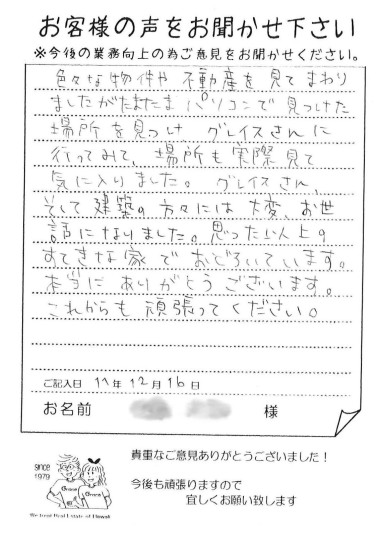 お客様の声をお聞かせ下さい
※今後の業務向上の為ご意見をお聞かせください。
色々な物件や不動産を見てまわり
ましたがたまたまパソコンで見つけた
場所を見つけ グレイスさんに
行ってみて、場所も実際見て
気に入りました。グレイスさん、
そして建築の方々には大変、お世
話になりました。思った以上の
すてきな家でおどろいています。
本当にありがとうございます。
これからも頑張ってください。
ご記入日 11年12月16日
お名前 様
貴重なご意見ありがとうございました！
今後も頑張りますので
宜しくお願い致します
since
1979
Grace
Grace
We treat Real Estate of Hawaii